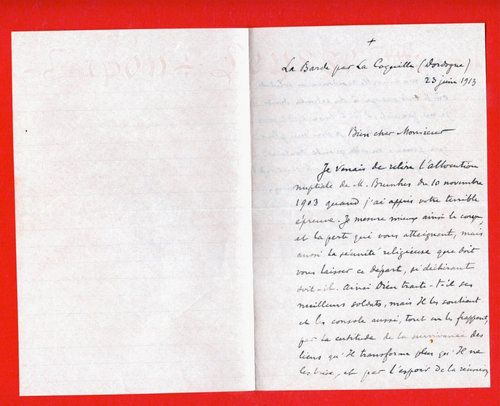 +
La Barde par La Coquille (Dordogne)
23 juin 1913
Bien cher Monsieur
Je venais de relire l'allocution
nuptiale de M. Brunhes du 10 novembre
1903 quand j'ai appris votre terrible
épreuve. Je mesure mieux ainsi le coup
et la perte qui vous atteignent, mais
aussi la sécurité religieuse que doit
vous laisser ce départ, si déchirant
soit-il. Ainsi Dieu traite-t-il ses
meilleurs soldats, mais Il les soutient
et les console aussi, tout en les frappant,
par la certitude de la survivance des
liens qu'Il transforme plus qu'Il ne
les brise, et par l'espoir de la réunion